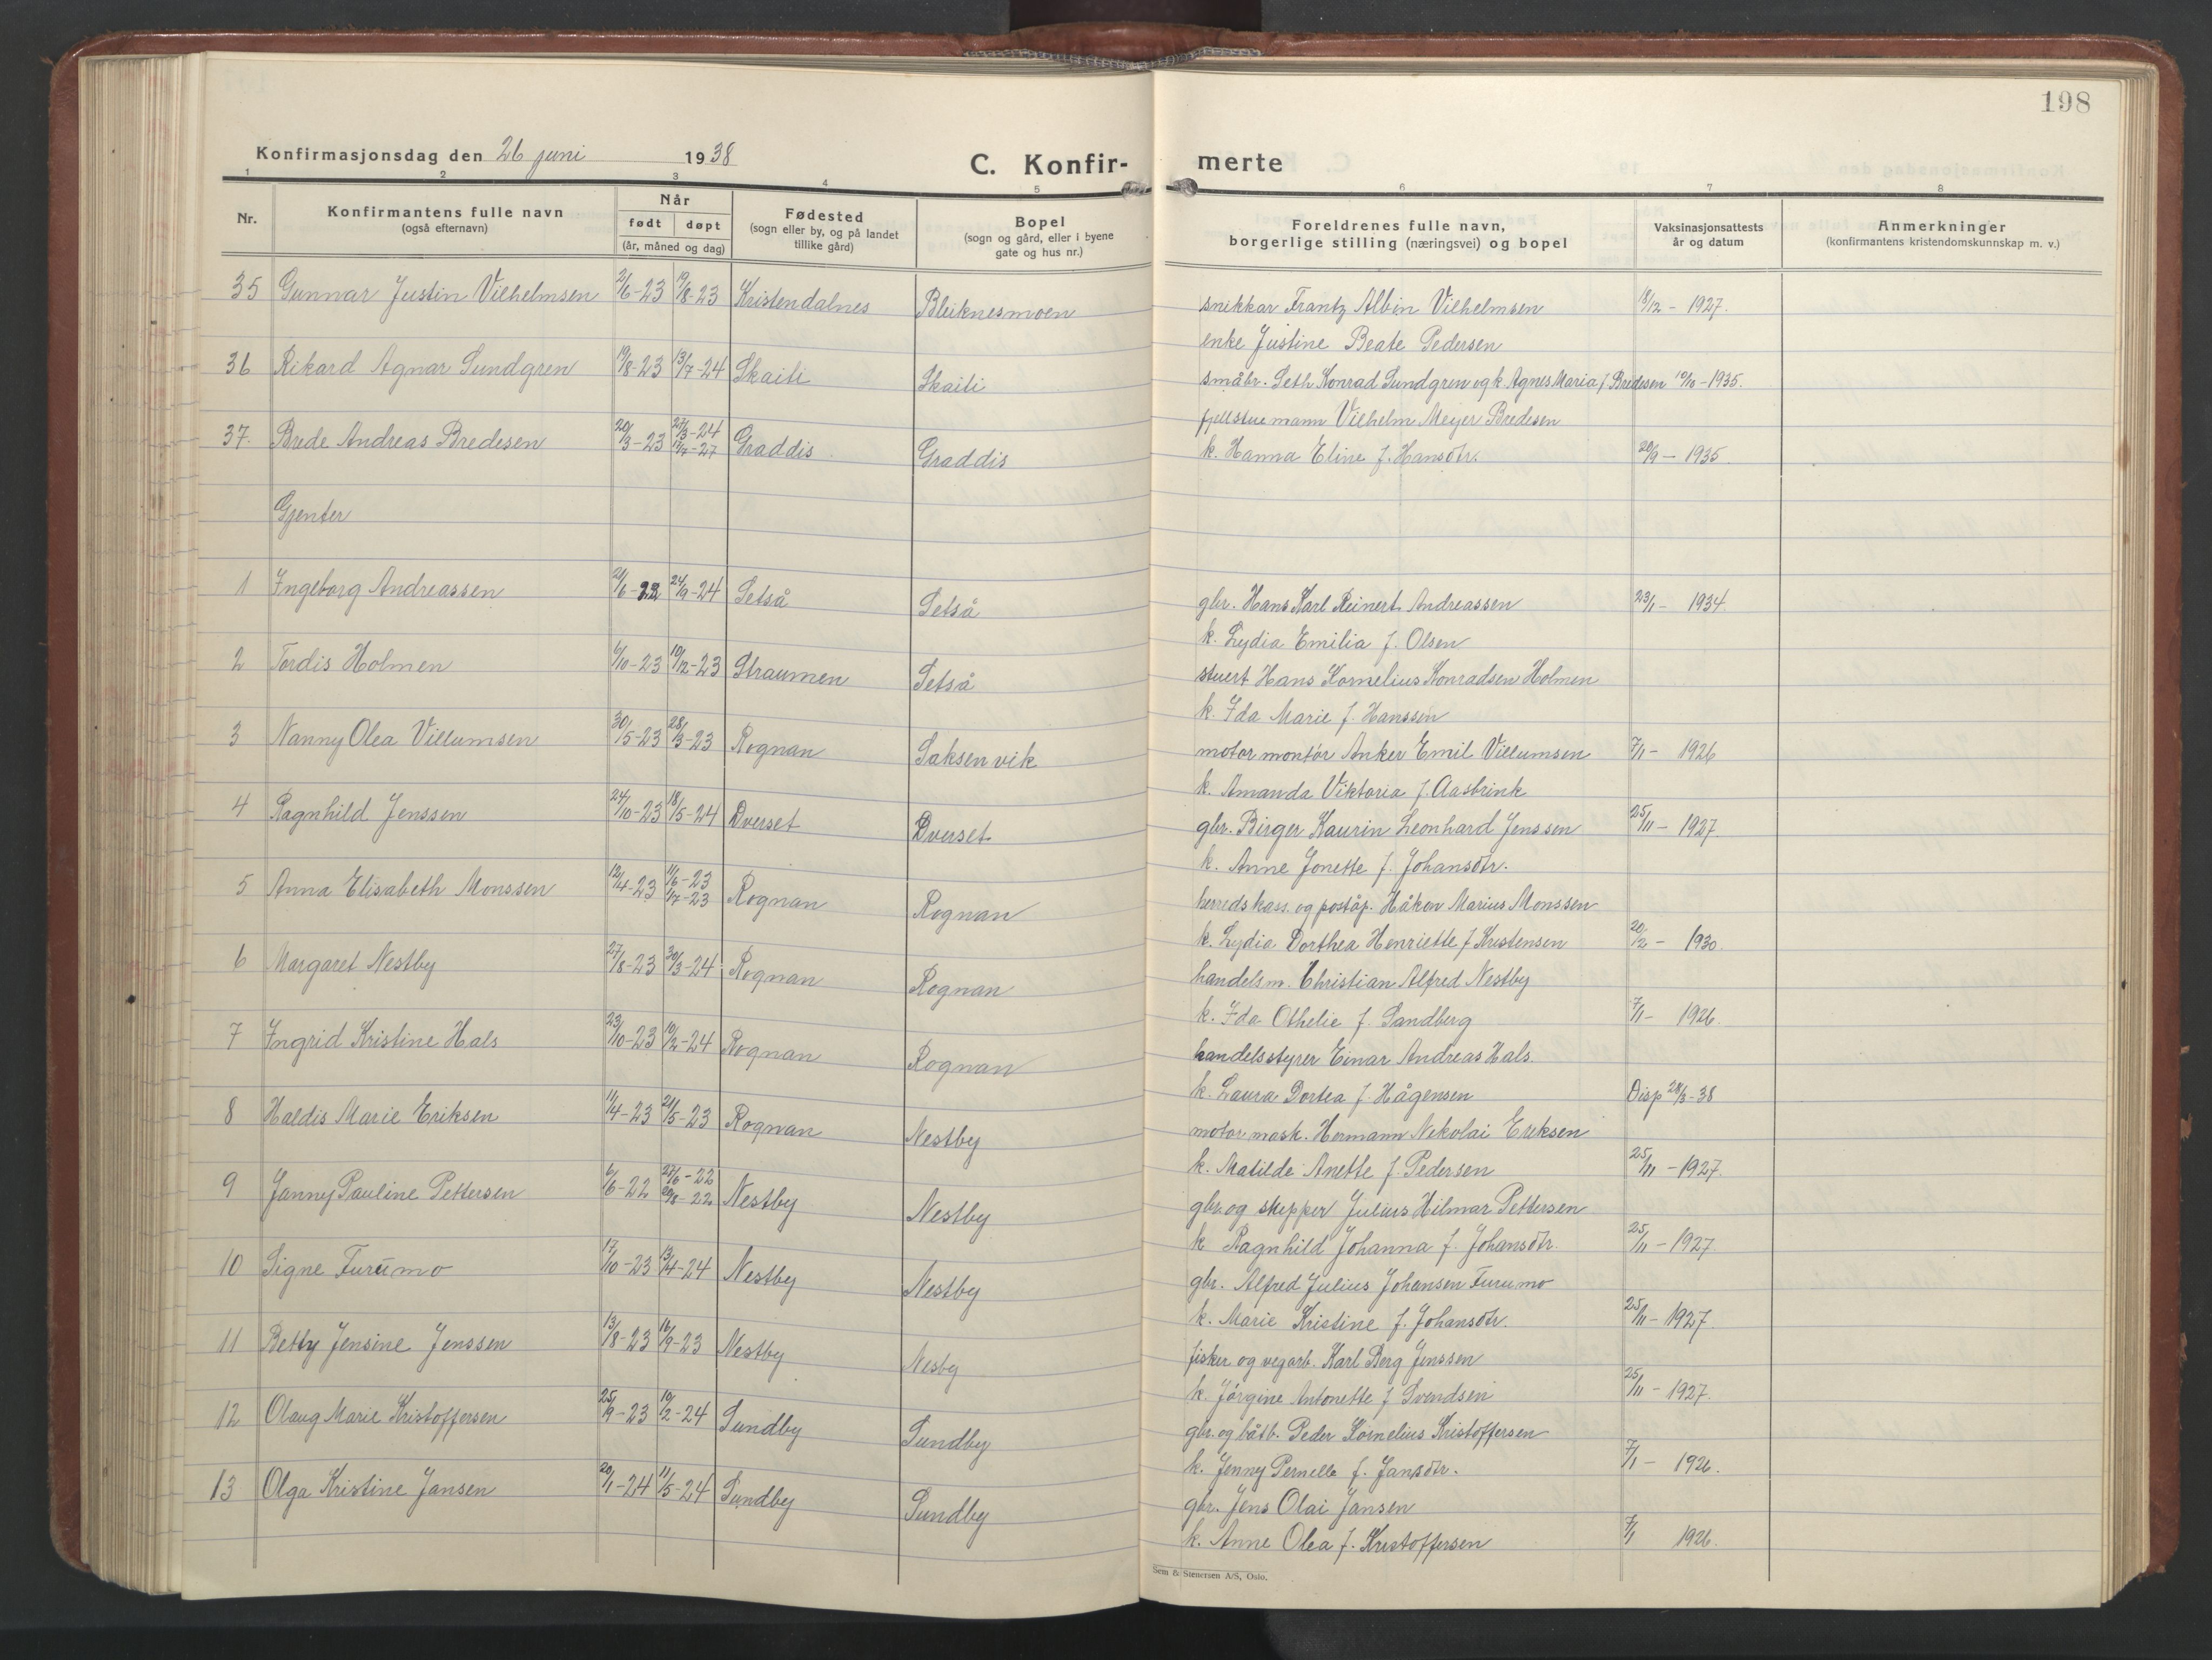 198
Konfirmasjonsdag den 26 juni 1938
C. Konfir- merte
1 2 3 4 5 6 7 8
Nr.
Konfirmantens fulle navn
(også efternavn)
Når
født døpt
(år, måned og dag)
Fødested
(sogn eller by, og på landet
tillike gård)
Bopel
(sogn og gård, eller i byene
gate og hus nr.)
Foreldrenes fulle navn,
borgerlige stilling (næringsvei) og bopel
Vaksinasjonsattests
år og datum
Anmerkninger
(konfirmantens kristendomskunnskap m. v.)
35 Gunnar Justin Vilhelmsen 2/6-23 19/8-23 Kristendalnes Bleiknesmoen snikkar Frantz Albin Vilhelmsen 18/12 - 1927.
enke Justine Beate Pedersen
36 Rikard Agnar Sundgren 19/8-23 13/7-24 Skaiti Skaiti småbr. Seth Konrad Sundgren og k. Agnes Maria f. Bredesen 10/10 - 1935.
fjellstuemann Vilhelm Meyer Bredesen
37. Brede Andreas Bredesen 20/3-23 27/3-24 17/7-27 Graddis Graddis k. Hanna Eline f. Hansdtr. 20/9 - 1935.
Gjenter
1 Ingeborg Andreassen 21/6-22 24/9-24 Setså Setså gbr. Hans Karl Reinert Andreassen 23/1 - 1934.
k. Lydia Emilia f. Olsen
2 Tordis Holmen 6/10-23 10/12-23 Straumen Setså stuert Hans Kornelius Konradsen Holmen
k. Ida Marie f. Hanssen
3 Nanny Olea Villumsen 30/5-23 28/3-23 Rognan Saksenvik motormontør Anker Emil Villumsen 7/1 - 1926
k. Amanda Viktoria f. Aasbrink
4 Ragnhild Jenssen 24/10-23 18/5-24 Dverset Dverset gbr. Birger Kaurin Leonhard Jenssen 25/11 - 1927
k. Anne Jonette f. Johansdtr.
5 Anna Elisabeth Monssen 12/4-23 11/6-23 1/7-23 Rognan Rognan herredskass. og poståp. Håkon Marius Monssen
k. Lydia Dorthea Henriette f Kristensen 20/2 - 1930.
6 Margaret Nestby 27/8-23 30/3-24 Rognan Rognan handelsm. Christian Alfred Nestby
k. Ida Othelie f. Sandberg 7/1 - 1926.
7 Ingrid Kristine Hals 23/10-23 10/2-24 Rognan Rognan handelsstyrer Einar Andreas Hals
k. Laura Dortea f. Hågensen Disp 28/3-38
8 Haldis Marie Eriksen 11/4-23 21/5-23 Rognan Nestby motormask. Hermann Nikolai Eriksen
k. Matilde Anette f. Pedersen 25/11 - 1927.
9 Janny Pauline Pettersen 6/6-22 27/6-22 20/8-22 Nestby Nestby gbr. og skipper Julius Hilmar Pettersen
k Ragnhild Johanna f. Johansdtr. 25/11 - 1927
10 Signe Furumo 17/10-23 13/4-24 Nestby Nestby gbr. Alfred Julius Johansen Furumo
k. Marie Kristine f. Johansdtr. 25/11 - 1927.
11 Betty Jensine Jenssen 13/8-23 16/9-23 Nestby Nesby fisker og vegarb. Karl Berg Jenssen
k. Jørgine Antonette f Svendsen 25/11 - 1927.
12 Olaug Marie Kristoffersen 25/9-23 10/2-24 Sundby Sundby gbr. og båtb. Peder Kornelius Kristoffersen
k. Jenny Pernelle f. Jansdtr. 7/1 - 1926.
13 Olga Kristine Jansen 20/1-24 11/5-24 Sundby Sundby gbr. Jens Olai Jansen
k. Anne Olea f. Kristoffersen 7/1 1926.
Sem & Stenersen A/S, Oslo.